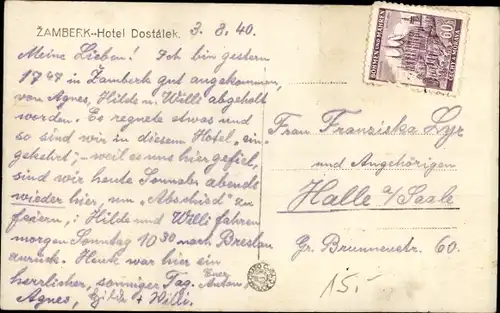 ŽAMBERK--Hotel Dostálek.
3. 8. 40.
Meine Lieben! Ich bin gestern
17⁴⁷ in Žamberk gut angekommen,
von Agnes, Hilde u. Willi abgeholt
worden. Es regnete etwas und
so sind wir in diesem Hotel „ein-
gekehrt", - weil es uns hier gefiel,
sind wir heute Sonnab. abends
wieder hier, um „Abschied" zu
feiern; Hilde und Willi fahren
morgen Sonntag 10³⁰ nach Breslau
zurück. Heute war hier ein
herrlicher, sonniger Tag. Euer Anton
Agnes, Hilde + Willi.
BÖHMEN UND MÄHREN
60
ČECHY A MORAVA
Frau Franziska Lyr
und Angehörigen
Halle a/Saale
Gr. Brunnenstr. 60.
15.-